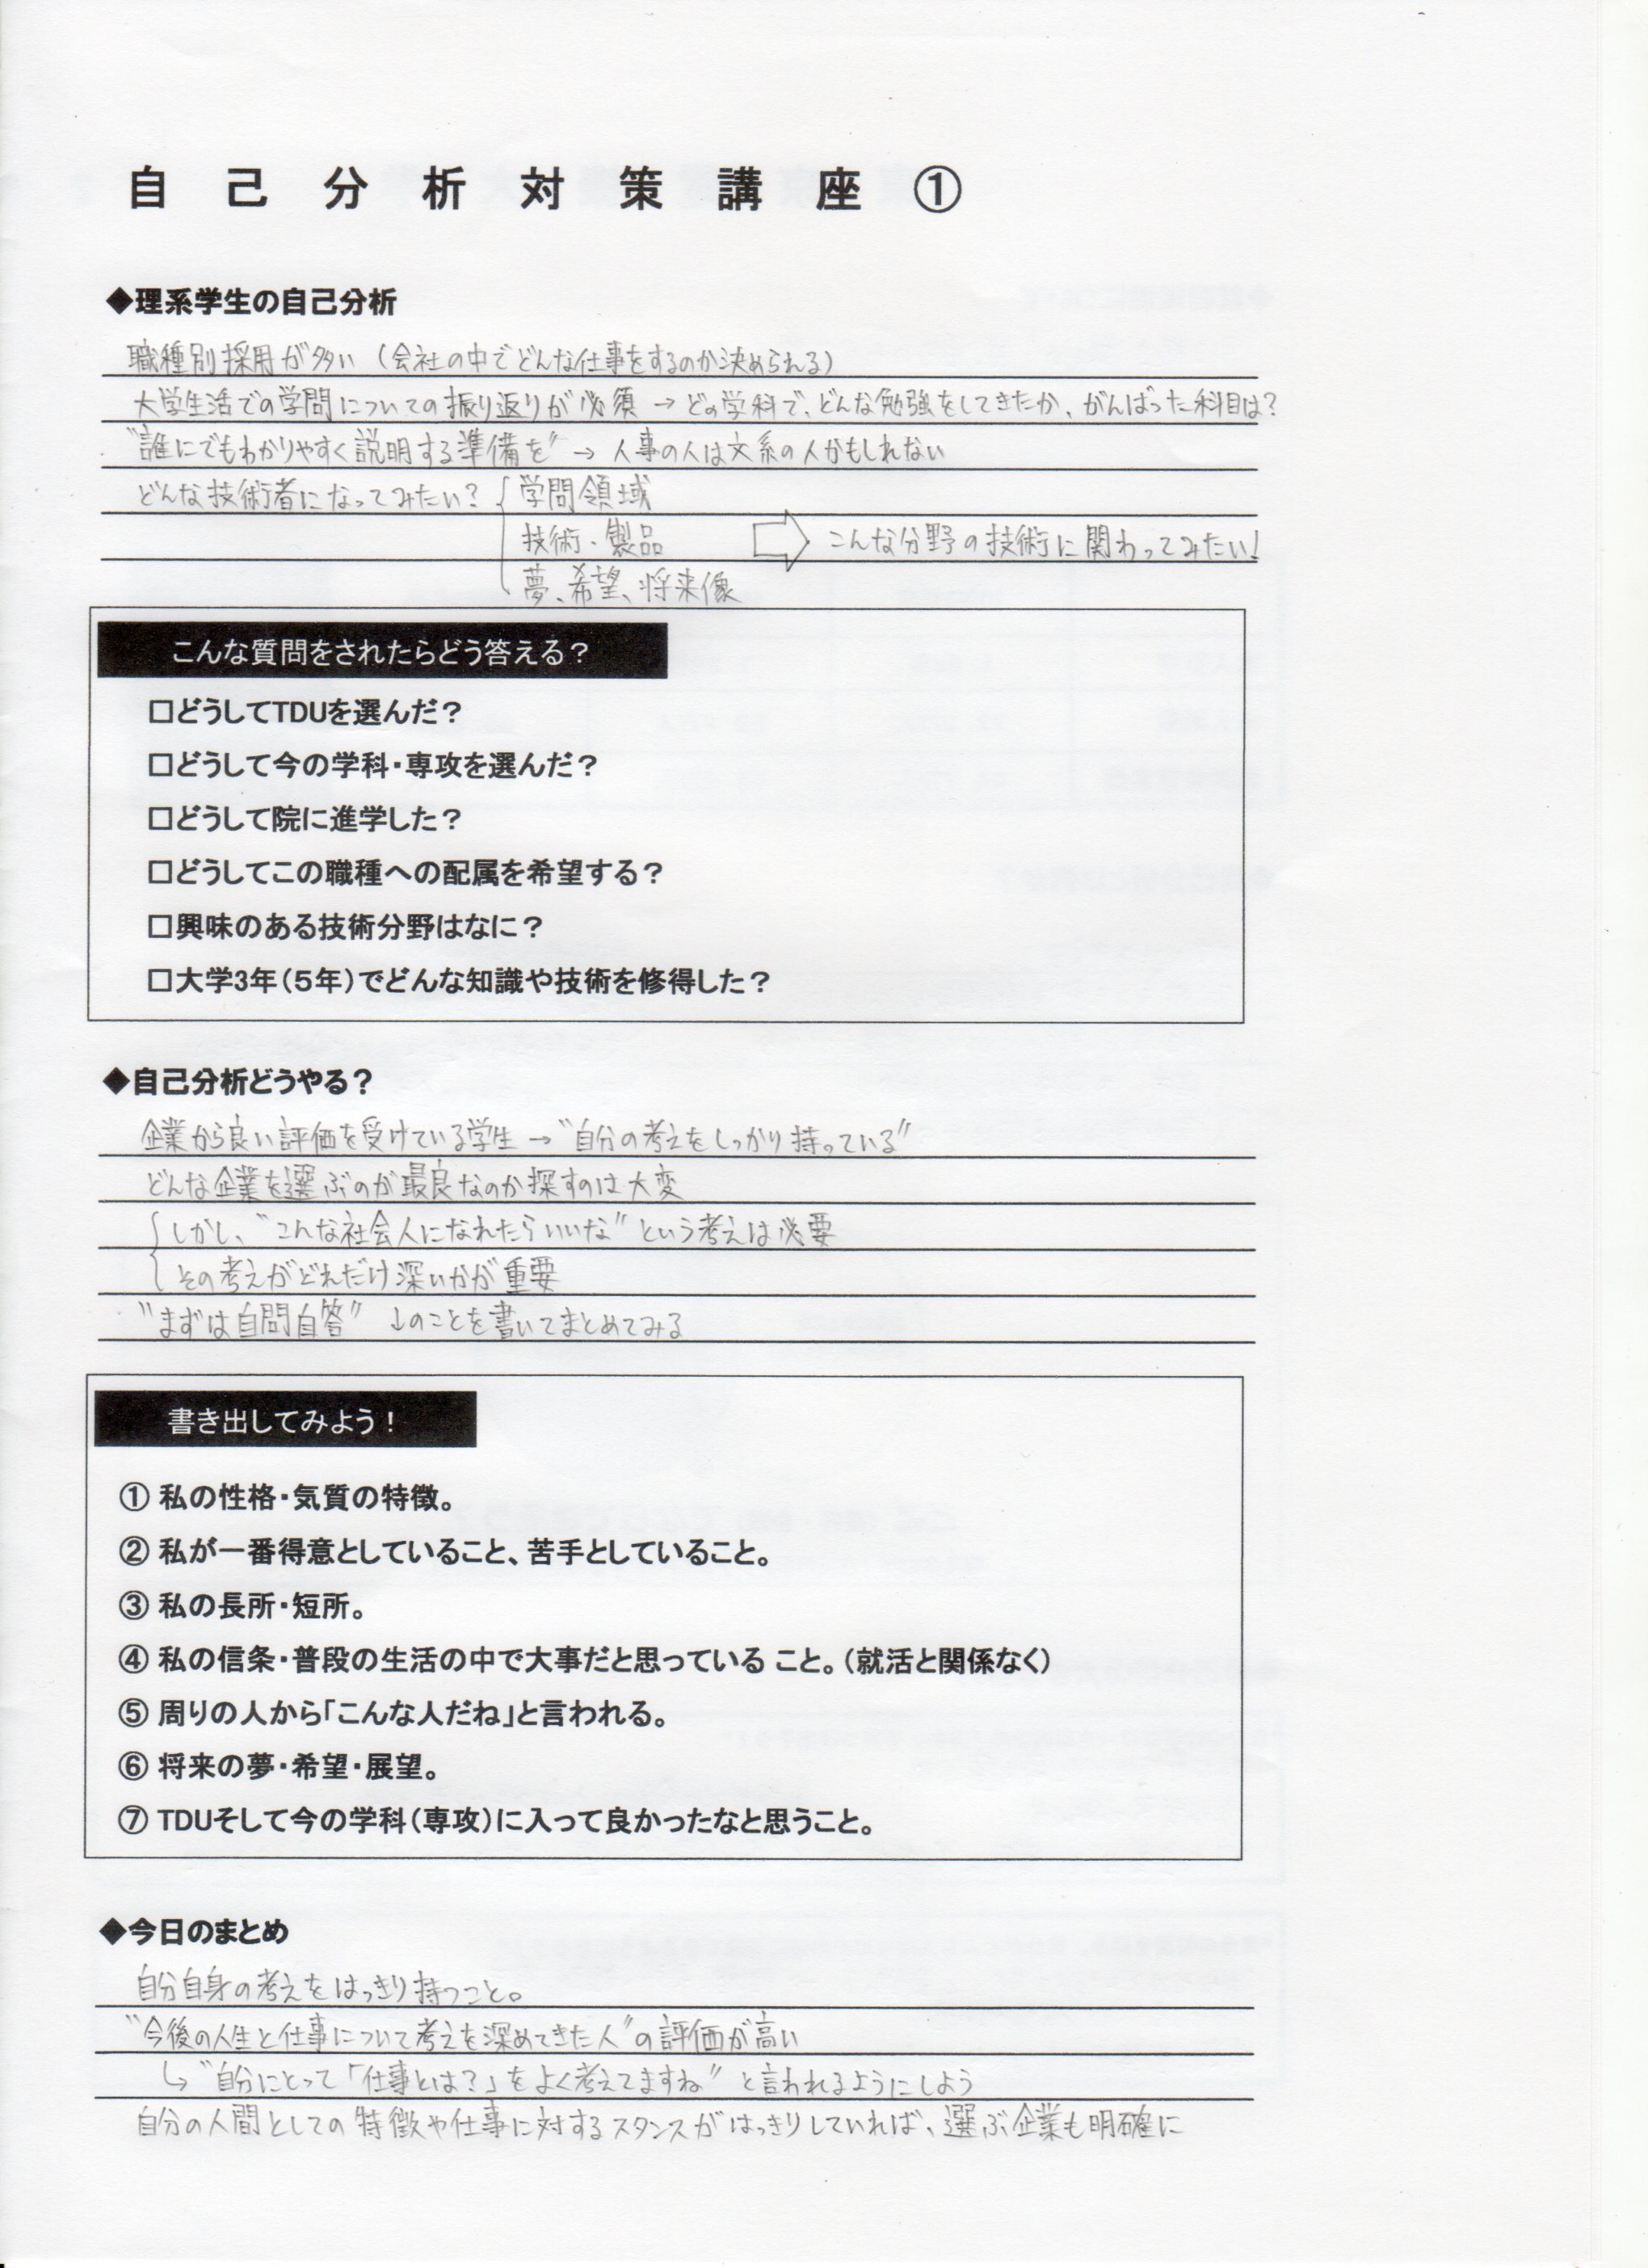 自己分析対策講座①
◆理系学生の自己分析
職種別採用が多い（会社の中でどんな仕事をするのか決められる）
大学生活での学問についての振り返りが必須→どの学科で、どんな勉強をしてきたか、がんばった科目は？
"誰にでもわかりやすく説明する準備を"→人事の人は文系の人かもしれない
どんな技術者になってみたい？ 学問領域
技術・製品 ⇨ こんな分野の技術に関わってみたい！
夢、希望、将来像
こんな質問をされたらどう答える？
□どうしてTDUを選んだ？
□どうして今の学科・専攻を選んだ？
□どうして院に進学した？
□どうしてこの職種への配属を希望する？
□興味のある技術分野はなに？
□大学3年（5年）でどんな知識や技術を修得した？
◆自己分析どうやる？
企業から良い評価を受けている学生→"自分の考えをしっかり持っている"
どんな企業を選ぶのが最良なのか探すのは大変
しかし、"こんな社会人になれたらいいな"という考えは必要
その考えがどれだけ深いかが重要
"まずは自問自答" ↓のことを書いてまとめてみる
書き出してみよう！
① 私の性格・気質の特徴。
② 私が一番得意としていること、苦手としていること。
③ 私の長所・短所。
④ 私の信条・普段の生活の中で大事だと思っている こと。（就活と関係なく）
⑤ 周りの人から「こんな人だね」と言われる。
⑥ 将来の夢・希望・展望。
⑦ TDUそして今の学科（専攻）に入って良かったなと思うこと。
◆今日のまとめ
自分自身の考えをはっきり持つこと。
"今後の人生と仕事について考えを深めてきた人"の評価が高い
↳"自分にとって「仕事とは？」をよく考えてますね"と言われるようにしよう
自分の人間としての特徴や仕事に対するスタンスがはっきりしていれば、選ぶ企業も明確に